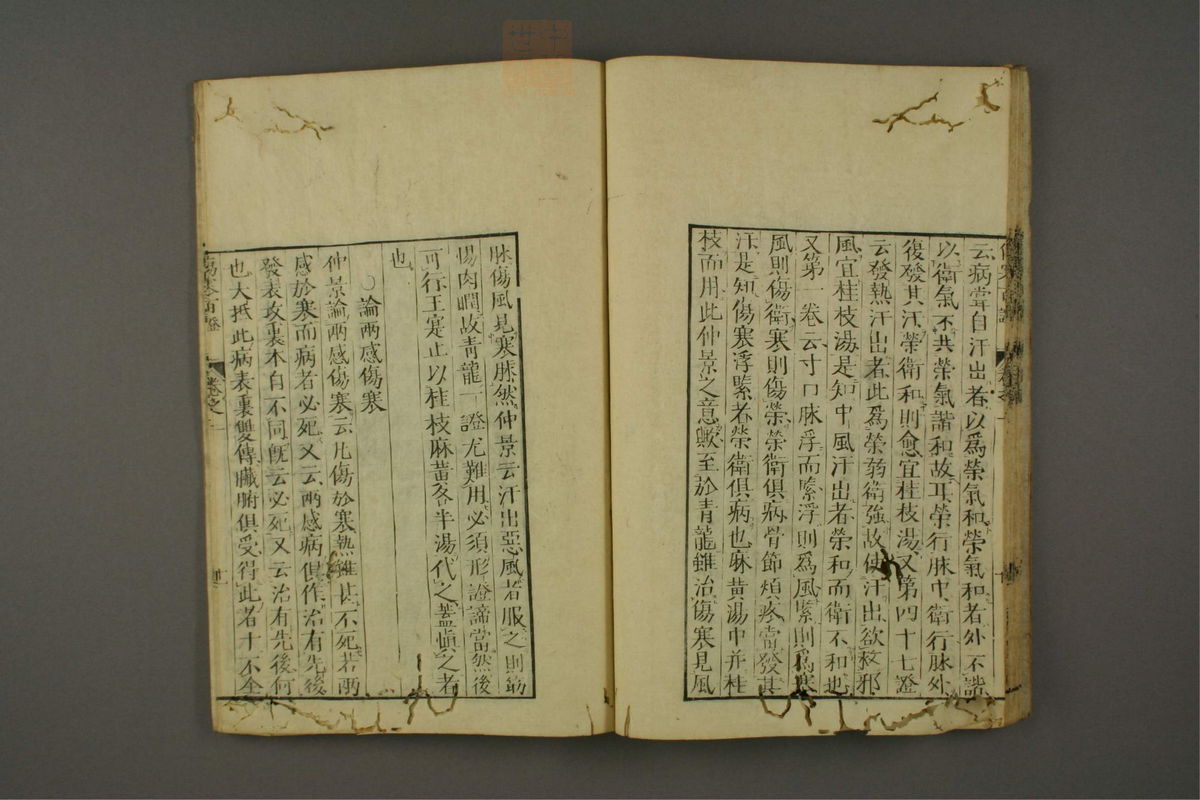 云病常自汗出者以爲榮氣和榮氣和者外不諧
以衛氣不共榮氣諧和故耳榮行脉中衛行脉外
復發其汗榮衛和則愈宜桂枝湯又第四十七證
云發熱汗出者此爲榮弱衛強故使汗出欲救邪
風宜桂枝湯是知中風汗出者榮和而衛不和也
又第一卷云寸口脉浮而緊浮則爲風緊則爲寒
風則傷衛寒則傷榮榮衛俱病骨節煩疼當發其
汗是知傷寒浮緊者榮衛俱病也麻黄湯中并桂
枝而用此仲景之意歟至於青龍雖治傷寒見風
脉傷風見寒脉然仲景云汗出惡風者服之則筋
惕肉瞤故青龍一證尤難用必須形證諦當然後
可行王寔止以桂枝麻黄各半湯代之蓋愼之者
也
○論兩感傷寒
仲景論兩感傷寒云凡傷於寒熱雖甚不死若兩
感於寒而病者必死又云兩感病俱作治有先後
發表攻裏本自不同既云必死又云治有先後何
也大抵此病表裏雙傳臟腑俱受得此者十不全